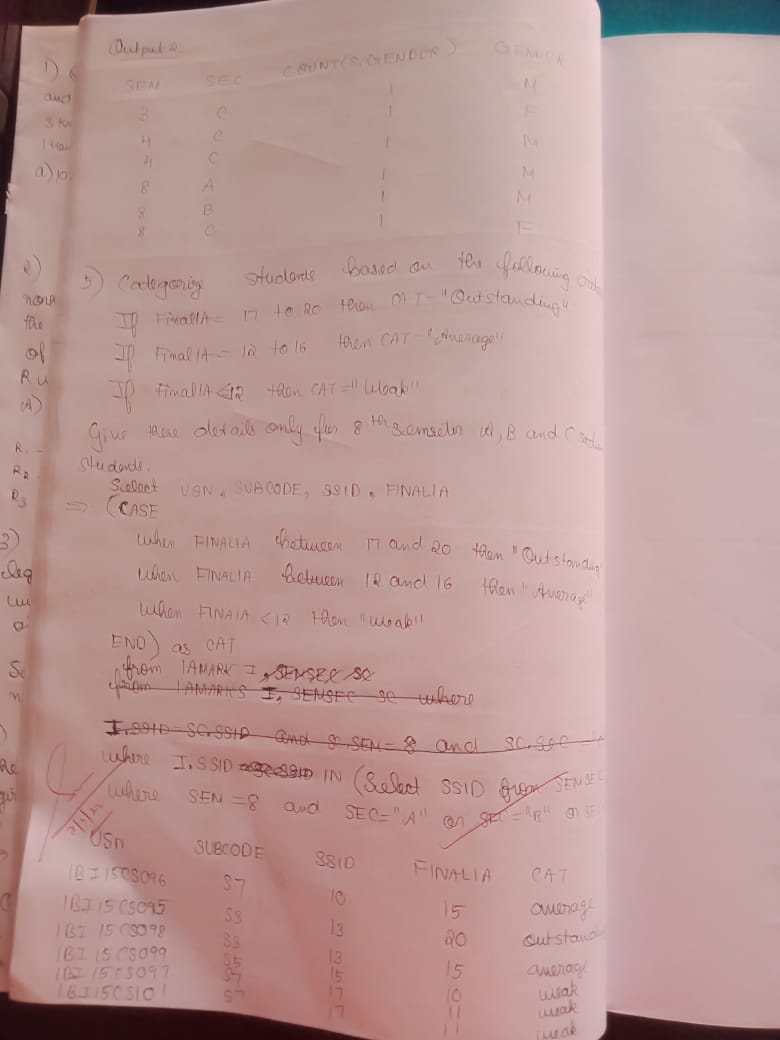 Output 2
SEM SEC COUNT(S.GENDER) GENDER
3 C 1 M
4 C 1 F
4 C 1 M
8 A 1 M
8 B 1 M
8 C 1 F
5) Categorize students based on the following
If FinalIA = 17 to 20 then CAT = "Outstanding"
If FinalIA = 12 to 16 then CAT = "Average"
If FinalIA < 12 then CAT = "Weak"
Give these details only for 8th semester A, B and C
students.
Select USN, SUBCODE, SSID, FINALIA
⇒ (CASE
when FINALIA between 17 and 20 then "Outstanding"
when FINALIA between 12 and 16 then "Average"
when FINAIA < 12 then "weak"
END) as CAT
from IAMARK I, SEMSEC SC
from IAMARKS I, SEMSEC SC where
I.SSID = SC.SSID and SC.SEM = 8 and SC.SEC =
where I.SSID IN (Select SSID from SEMSEC
where SEM = 8 and SEC = "A" or SEC = "B" or SE
USN SUBCODE SSID FINALIA CAT
1BI15CS096 S7 10 15 average
1BI15CS095 S8 13 20 outstand
1BI15CS098 S8 13 15 average
1BI15CS099 S5 15 10 weak
1BI15CS097 S7 17 11 weak
1BI15CS101 S7 17 11 weak